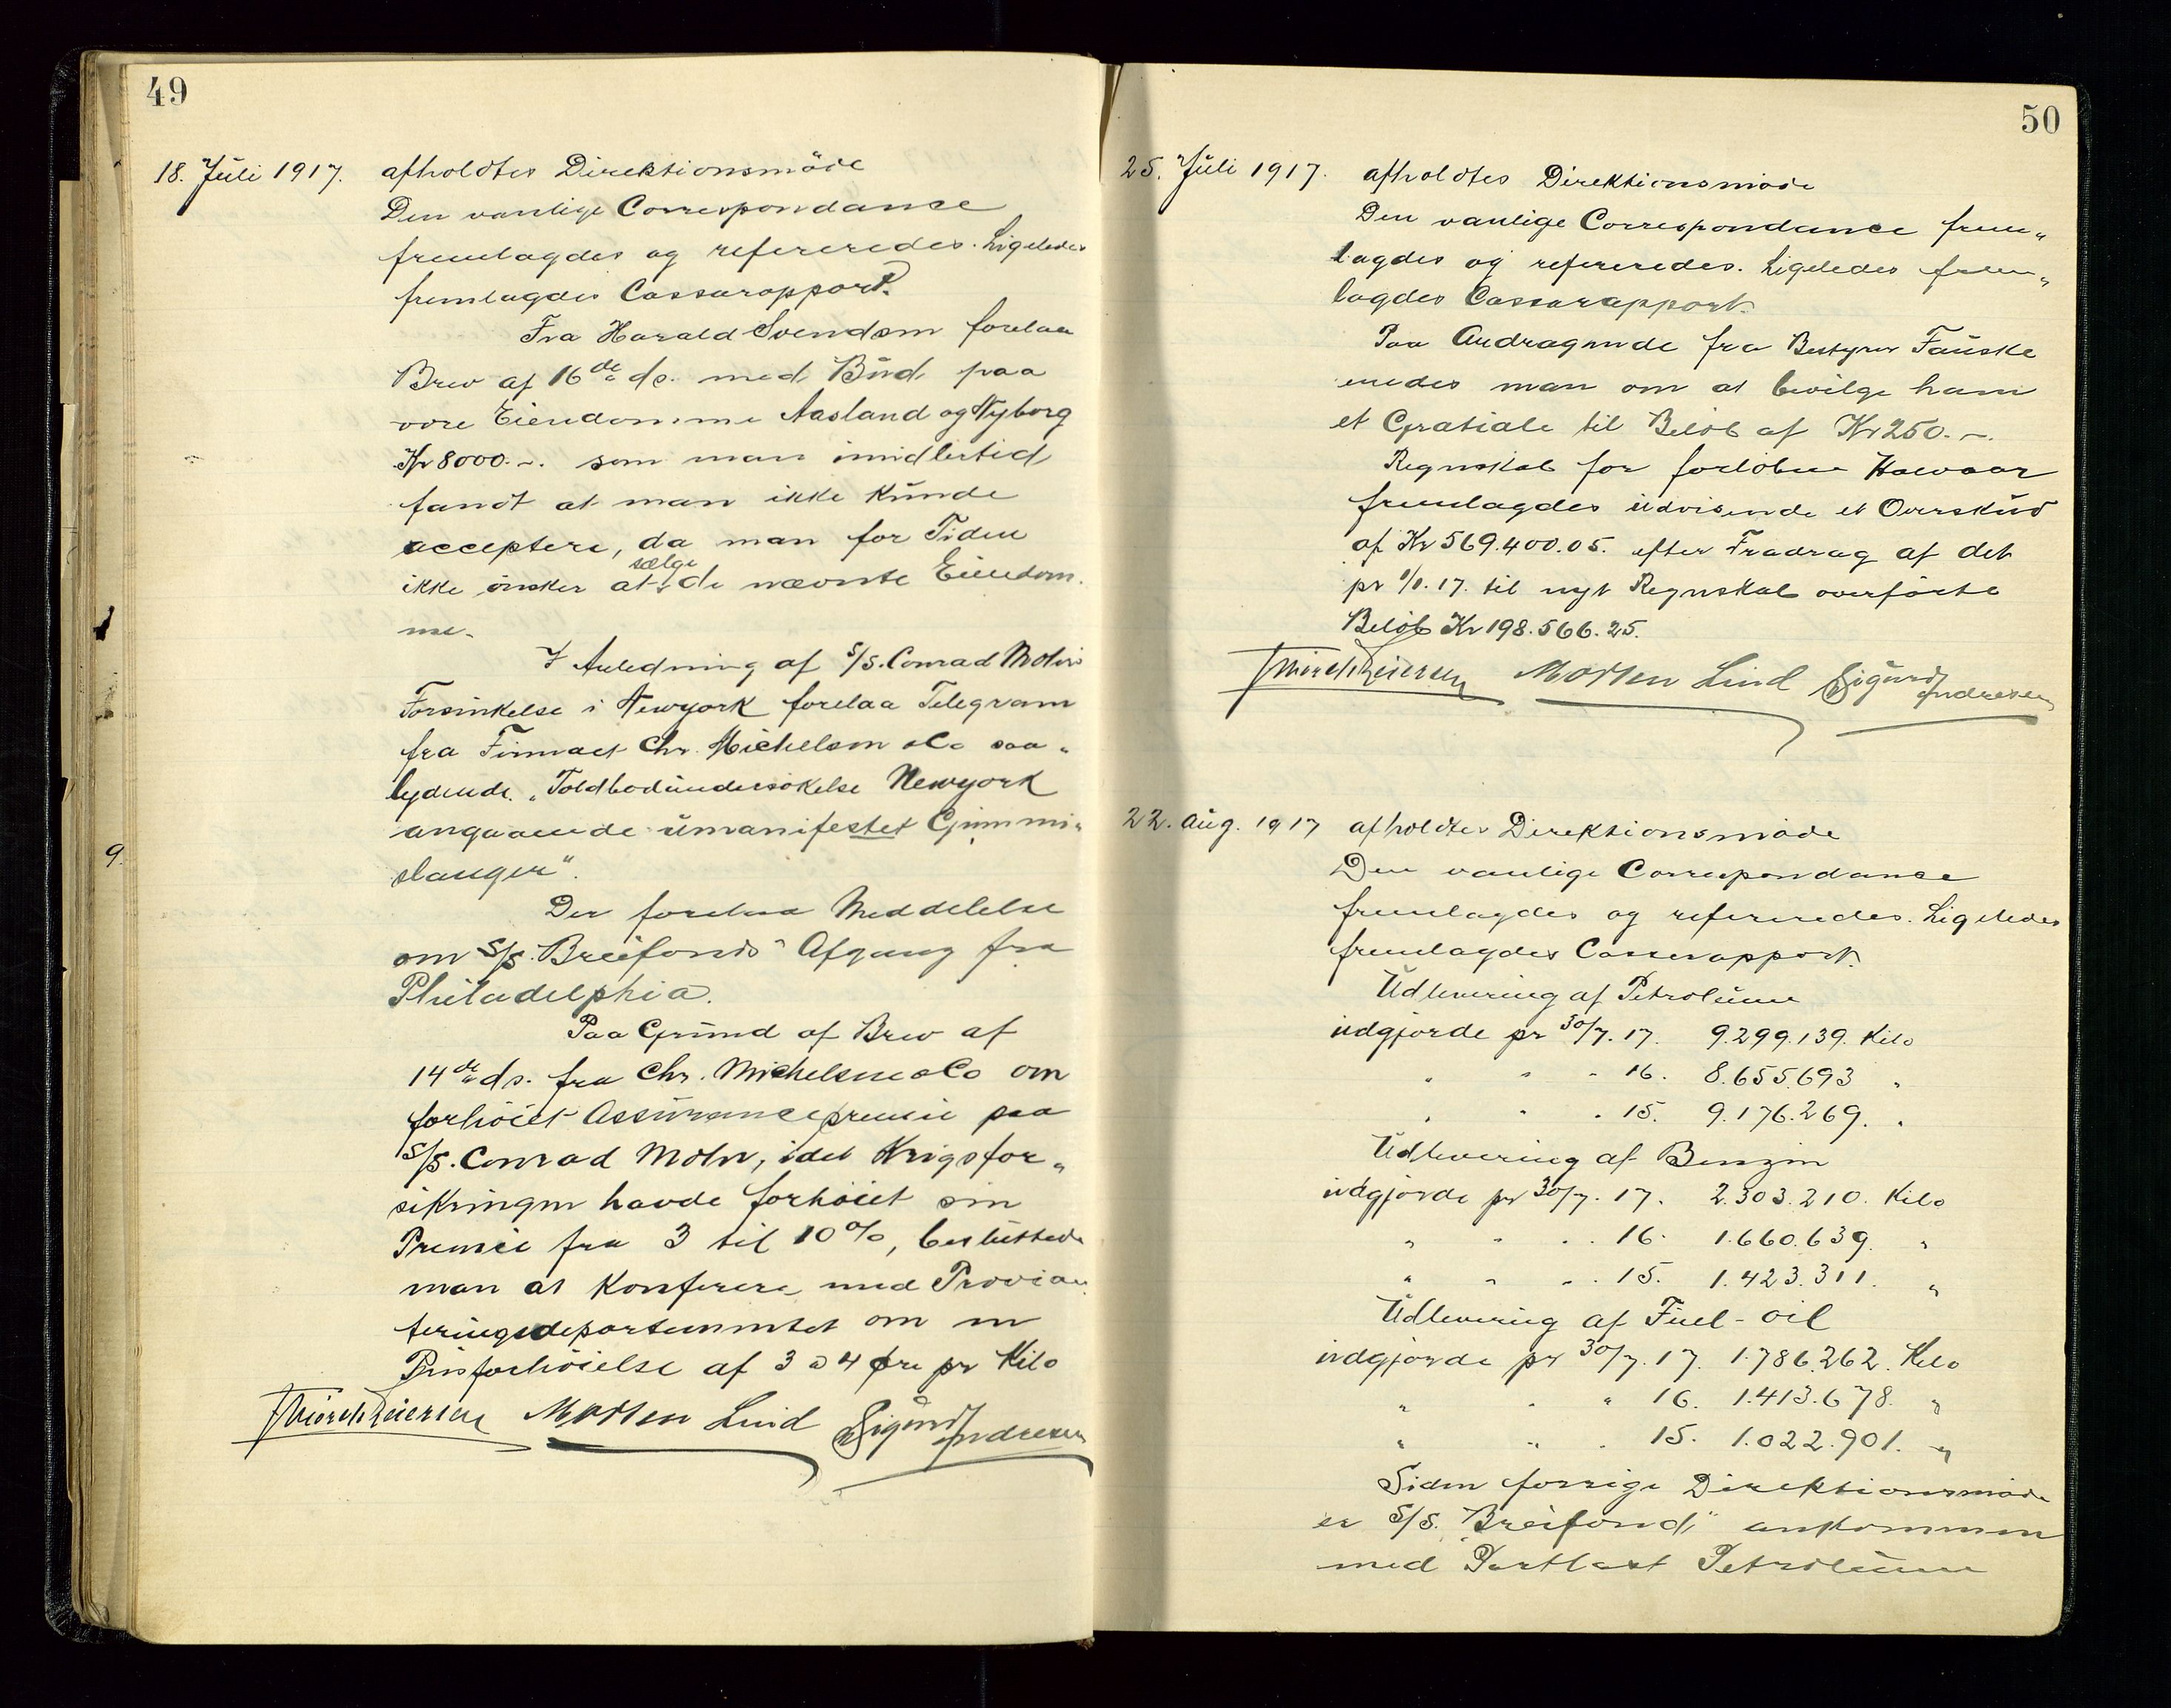 49
18. Juli 1917. afholdtes Direktionsmöde
Den vanlige Correspondance
fremlagdes og refereredes. Ligeledes
fremlagdes Cassarapport.
Fra Harald Svendsen forelaa
Brev af 16de ds. med Bud paa
vore Eiendomme Aasland og Nyborg
Kr 8000.-. som man imidlertid
fandt at man ikke kunde
acceptere, da man for Tiden
ikke önsker at sælge de nævnte Eiendom-
me.
I Anledning af S/S. Conrad Mohrs
Forsinkelse i Newyork forelaa Telegram
fra Firmaet Chr. Michelsen & Co saa-
lydende. "Toldbodundersökelse Newyork
angaaende umanifestet Gummi-
slanger".
Der forelaa Meddelelse
om S/S. "Breifonds" Afgang fra
Philadelphia.
Paa Grund af Brev af
14de ds. fra Chr. Michelsen & Co om
forhöiet Assurancepremie paa
S/S. Conrad Mohr, idet Krigsfor-
sikringen havde forhöiet sin
Premie fra 3 til 10%, besluttede
man at konferere med Provian-
teringsdepartementet om en
Prisforhöielse af 3 à 4 øre pr Kilo
Morten Lind Sigurd Andresen
50
25. Juli 1917. afholdtes Direktionsmöde
Den vanlige Correspondance frem-
lagdes og refereredes. Ligeledes frem-
lagdes Cassarapport.
Paa Andragende fra Bestyrer Fauske
enedes man om at bevilge ham
et Gratiale til Belöb af Kr 250.-.
Regnskab for forlöbne Halvaar
fremlagdes udvisende et Overskud
af Kr 569.400.05. efter Fradrag af det
pr 1/1. 17. til nyt Regnskab overförte
Belöb Kr 198.566.25.
Morten Lind Sigurd Andresen
22. Aug. 1917 afholdtes Direktionsmöde
Den vanlige Correspondance
fremlagdes og refereredes. Ligeledes
fremlagdes Casserapport.
Udlevering af Petroleum
udgjorde pr 30/7. 17. 9.299.139. Kilo
" " " 16. 8.655.693 "
" " " 15. 9.176.269. "
Udlevering af Benzin
udgjorde pr 30/7. 17. 2.303.210. Kilo
" " " 16. 1.660.639. "
" " " 15. 1.423.311. "
Udlevering af Fuel-oil
udgjorde pr 30/7. 17. 1.786.262. Kilo
" " " 16. 1.413.678. "
" " " 15. 1.022.901. "
Siden forrige Direktionsmöde
er S/S. "Breifond" ankommen
med Partlast Petroleum